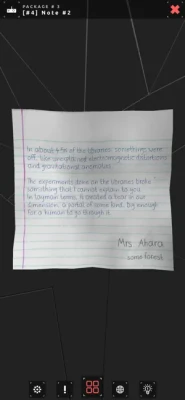 PACKAGE # 3
[#4] Note #2
In about 4 of the libraries, somethings were
off. We
electromagnetic distortions
and gravitational anomalies.
The experiments done on the libraries
something that I cannot explain to you.
In laymen terms, it created a tear in our
dimension, a portal of some kind. Big enough
for a human to go through it.
Mrs. Ahara
some forest